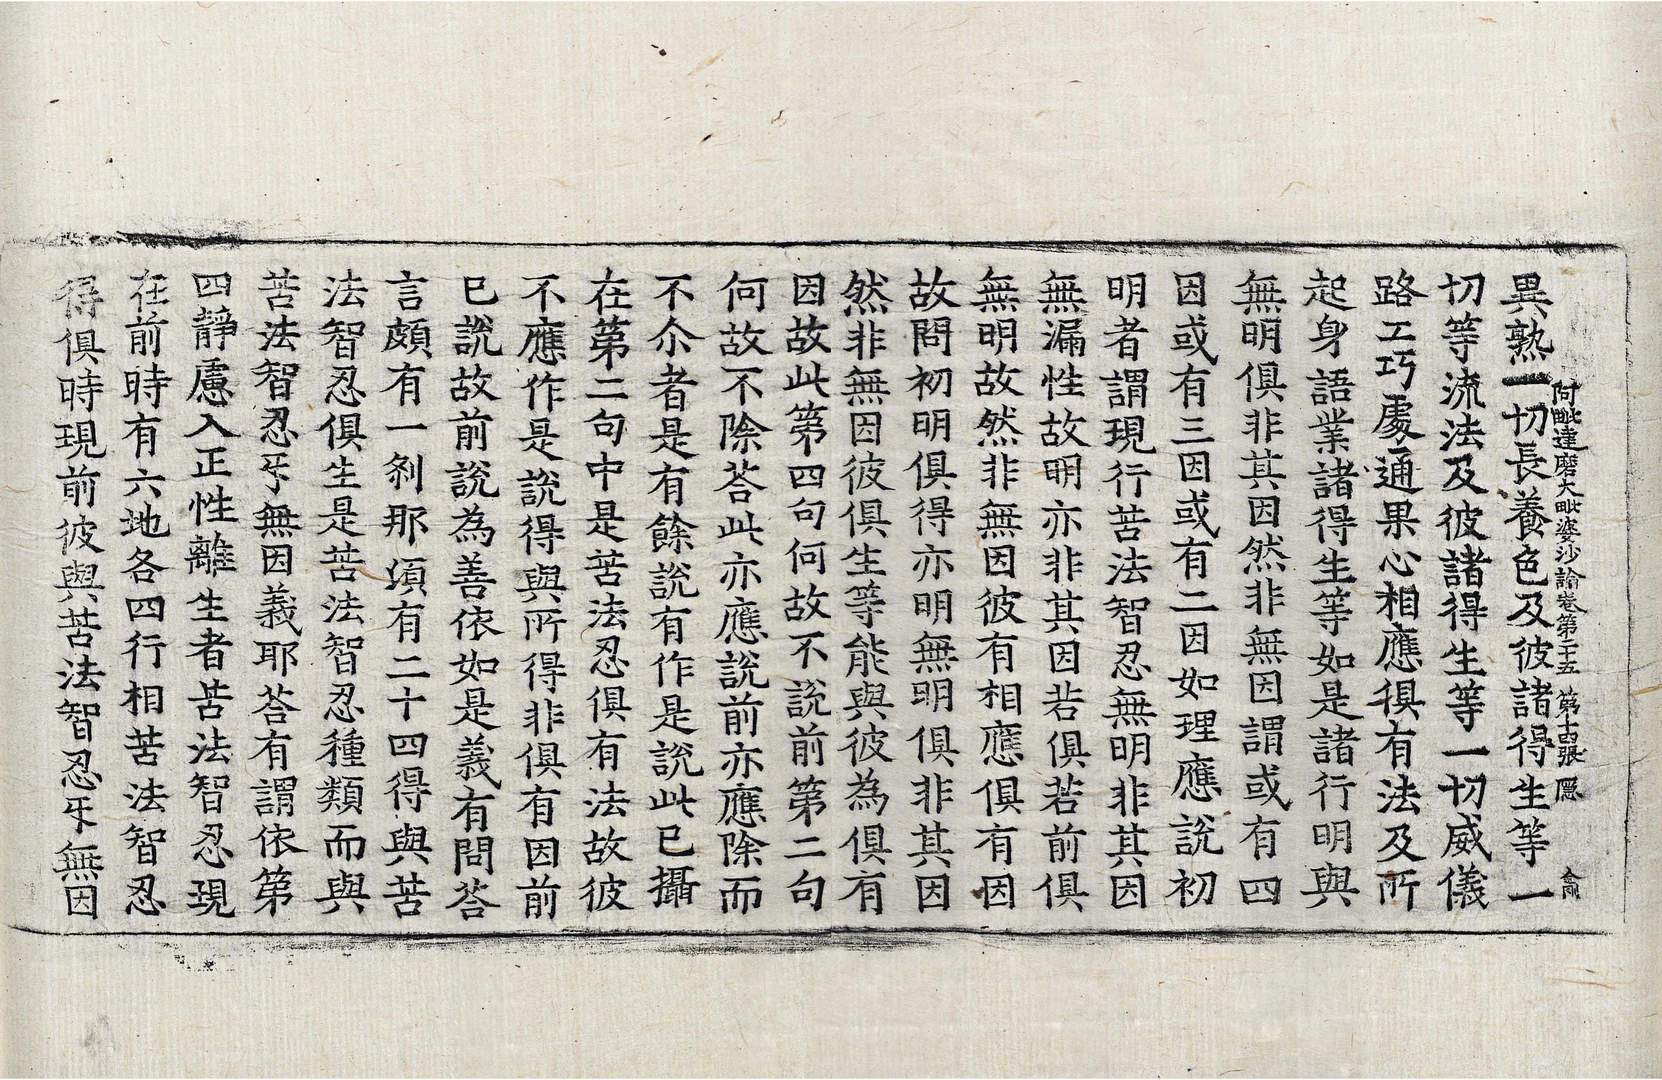 阿毗達磨大毗婆沙論卷第二十五 第十四張 隱
異熟一切長養色及彼諸得生等一
切等流法及彼諸得生等一切威儀
路工巧處通果心相應俱有法及所
起身語業諸得生等如是諸行明與
無明俱非其因然非無因謂或有四
因或有三因或有二因如理應說初
明者謂現行苦法智忍無明非其因
無漏性故明亦非其因若俱若前俱
無明故然非無因彼有相應俱有因
故問初明俱得亦明無明俱非其因
然非無因彼俱生等能與彼為俱有
因故此第四句何故不說前第二句
何故不除荅此亦應說前亦應除而
不尒者是有餘說有作是說此已攝
在第二句中是苦法忍俱有法故彼
不應作是說得與所得非俱有因前
已說故前說為善依如是義有問荅
言頗有一剎那頃有二十四得與苦
法智忍俱生是苦法智忍種類而與
苦法智忍㸦無因義耶荅有謂依第
四靜慮入正性離生者苦法智忍現
在前時有六地各四行相苦法智忍
得俱時現前彼與苦法智忍㸦無因